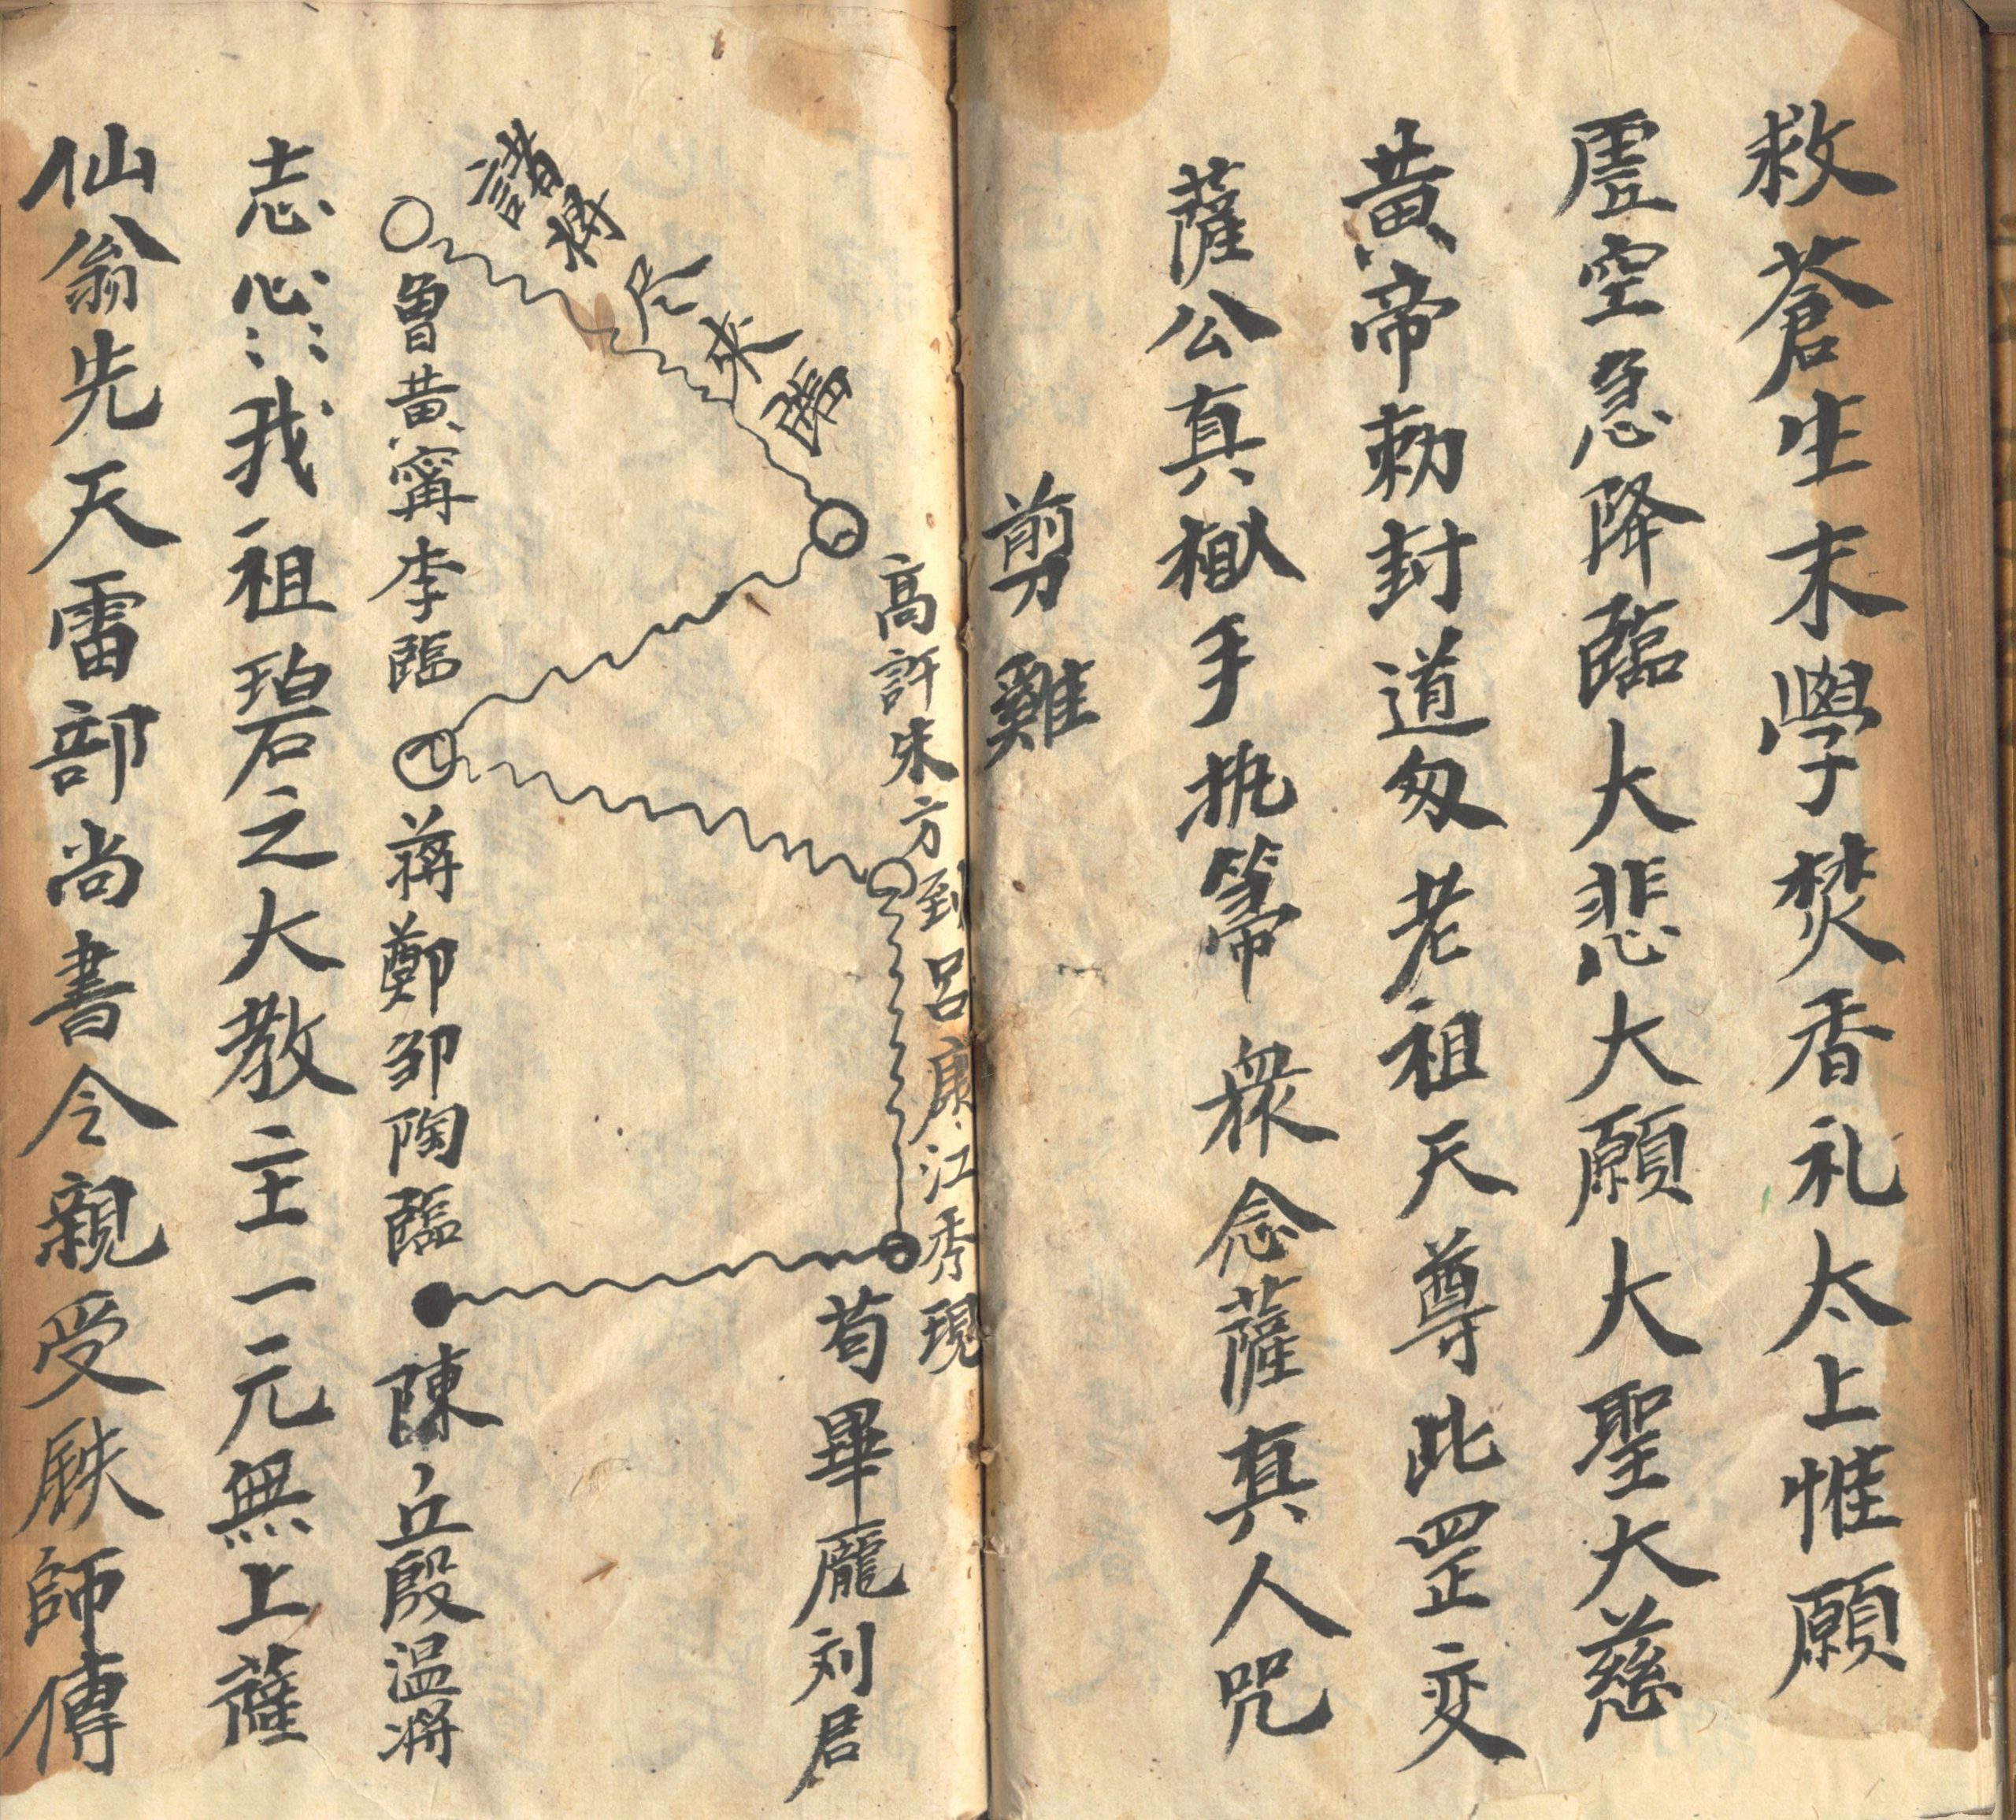 救蒼生末學焚香礼太上惟願
虚空急降臨大悲大願大聖大慈
黃帝勅封道匁老祖天尊此罡变
薩公真嶽手执箒 衆念薩真人咒
剪雞
高許朱方到呂康江秀現
荀畢龐刘君
諸將尽来臨
魯黃寗李臨
蔣鄭邹陶臨
陳丘殷温将
志心⋮⋮我祖碧之大教主一元無上薩
仙翁先天雷部尚書令親受師傳